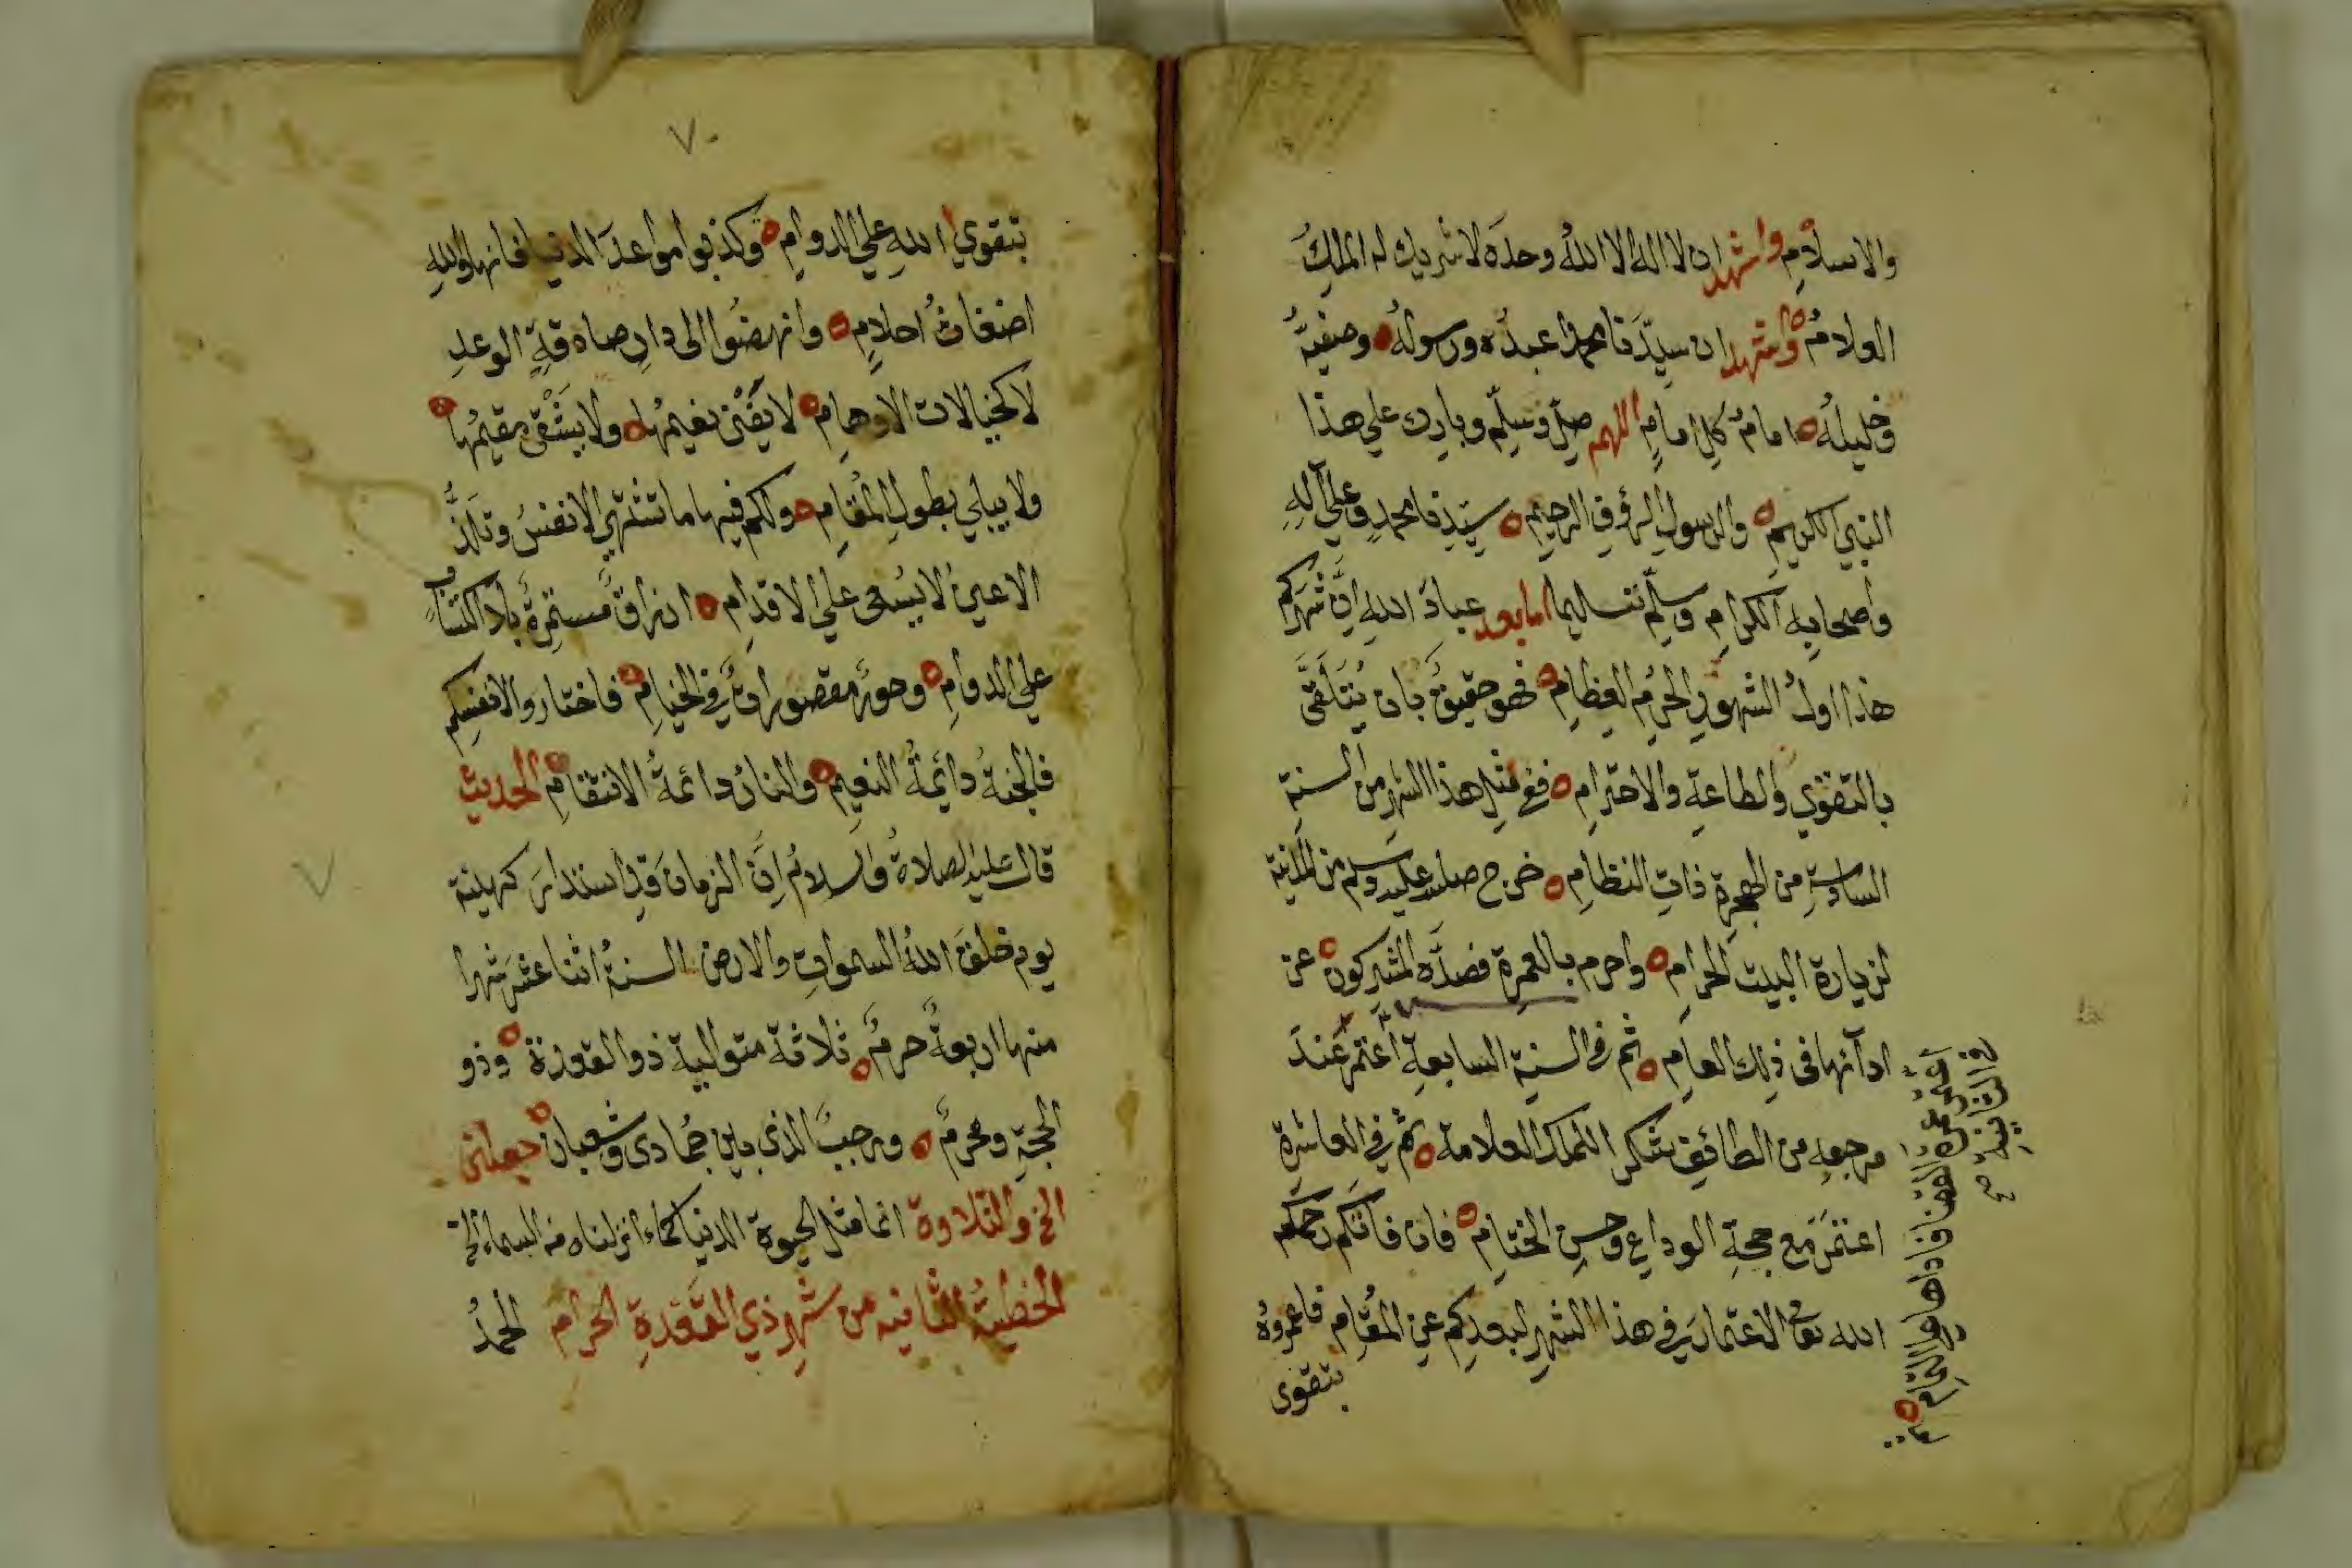 والاسلام واشهد ان لا اله الا الله وحده لا شريك له الملك
العلام واشهد ان سيّدنا محمدا عبده ورسوله وصفيّه
وخليله امام كل امام اللهم صلّ وسلّم وبارك علي هذا
النبي الكريم والرسول الرؤف الرحيم سيّدنا محمد وعلي آله
واصحابه الكرام وسلّم تسليما اما بعد عباد الله انّ شهركم
هذا اول الشهور الحرم العظام فهو حقيق بان يُتَلَقَّى
بالتقوي والطاعة والاحترام ففي مثل هذا الشهر من السنة
السادسة من الهجرة ذات النظام خرج صلى الله عليه وسلم من المدينة
لزيارة البيت الحرام واحرم بالعمرة فصدّه المشركون عن
ادآئها فى ذلك العام ثم في السنة السابعة اعتمر عند
مرجعه من الطائف شكرا للملك العلامة ثم في العاشرة
اعتمر مع حجة الوداع وحسن الختام فان فاتكم رحمكم
الله تعالى الاعتمار في هذا الشهر لبعدكم عن المقام فاعمروه
بتقوى
اعتمر عمرة القضا فاداها
في الثامنة صح
٧٠
بتقوي الله علي الدوام وكذبوا مواعد الدنيا فانها والله
اضغاث احلام وانهضوا الى دار صادقة الوعد
لا كخيالات الاوهام لا يفنى نعيمها ولا يشقى مقيمها
ولا يبلي بطول المقام ولكم فيها ما تشتهي الانفس وتلذّ
الاعين لا بسعى علي الاقدام ارزاق مستمرة بلا اكتساب
علي الدوام وحور مقصورات في الخيام فاختاروا لانفسكم
فالجنة دائمة النعيم والنار دائمة الانتقام الحديث
قال عليه الصلاة والسلام انّ الزمان قد استدار كهيئته
يوم خلق الله السموات والارض السنة اثنا عشر شهرا
منها اربعة حرم ثلاثة متوالية ذو القعدة وذو
الحجة ومحرم ورجب الذي بين جمادى وشعبان جعلنى
الخ والتلاوة انما مثل الحيوة الدنيا كماء انزلناه من السماء الخ
الخطبة الثانيه من شهر ذي القعدة الحرام الحمد